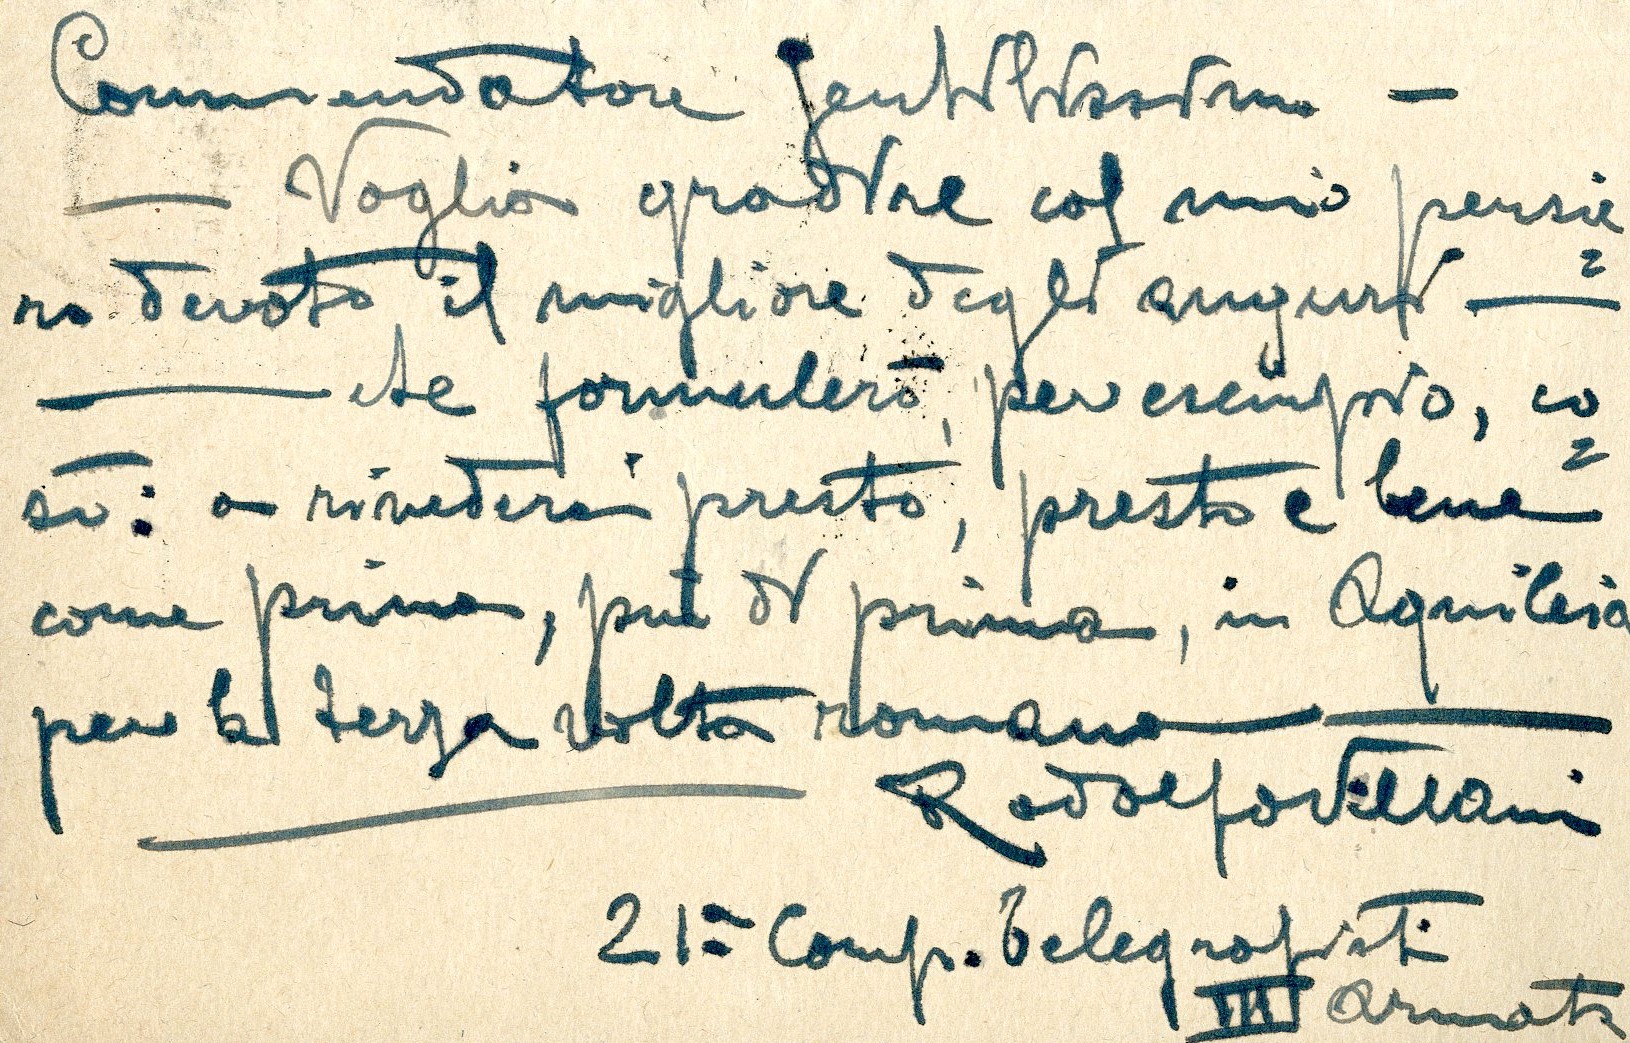 Commendatore gentilissimo —
— Voglia gradire col mio pensie
ro devoto il migliore degli auguri —
— che formulerò, per esempio, co
sì: a rivederci presto, presto e bene
come prima, più di prima, in Aquileia
per la terza volta romana —
Rodolfo Villani
21ª Comp. Telegrafisti
III Armata